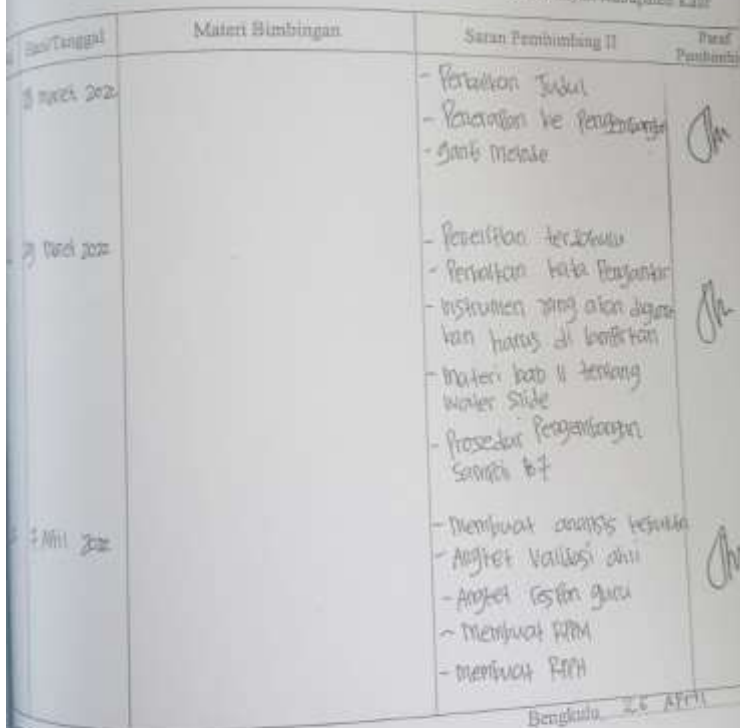 Kabupaten Kaur
Hari/Tanggal Materi Bimbingan Saran Pembimbing II Paraf
Maret 2022
- Perbaikan Judul
- Penerapan ke Pengembangan
- Ganti Metode
Maret 2022
- Penelitian terdahulu
- Perbaikan kata Pengantar
- Instrumen yang akan diguna
kan harus di lampirkan
- Materi bab II tentang
water slide
- Prosedur Pengembangan
Sampai
7 April 2022
- Membuat analisis
- Angket Validasi ahli
- Angket respon guru
- Membuat RPPM
- membuat RPPH
Bengkulu, 26 April